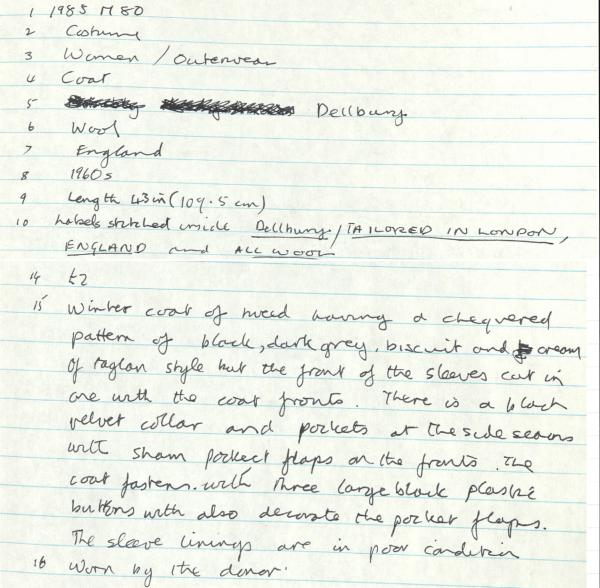 1 1985 M 80
2 Costume
3 Women / Outerwear
4 Coat
5 Dellbury
6 Wool
7 England
8 1960s
9 Length 43in (109.5 cm)
10 Labels stitched inside Dellbury / TAILORED IN LONDON,
ENGLAND and ALL WOOL
14 £2
15 Winter coat of tweed having a chequered
pattern of black, dark grey, biscuit and cream
of raglan style but the front of the sleeves cut in
one with the coat fronts. There is a black
velvet collar and pockets at the side seams
with sham pocket flaps on the fronts. The
coat fastens with three large black plastic
buttons with also decorate the pocket flaps.
The sleeve linings are in poor condition
16 Worn by the donor.